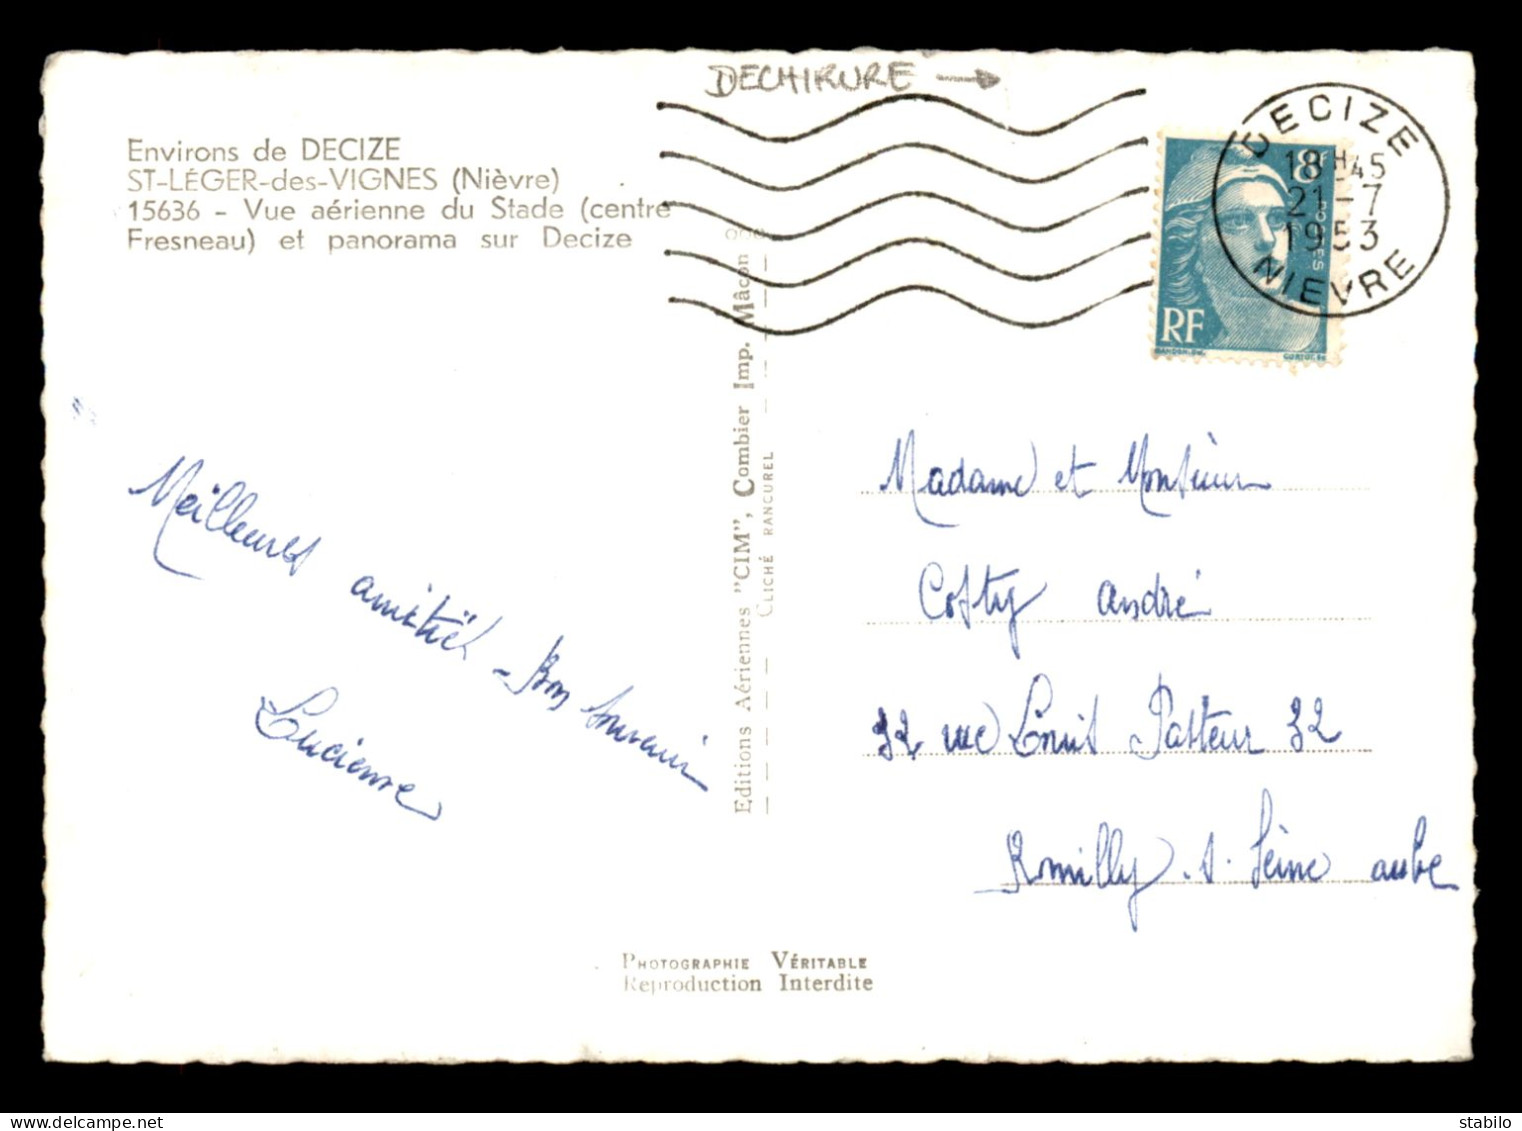 DECHIRURE →
Environs de DECIZE
ST-LÉGER-des-VIGNES (Nièvre)
15636 - Vue aérienne du Stade (centre
Fresneau) et panorama sur Decize
DECIZE
18H45
21-7
1953
NIEVRE
8F
POSTES
RF
GANDON
Editions Aériennes "CIM", Combier Imp. Mâcon
CLICHÉ RANCUREL
Meilleures amitiés - Bon souvenir
Lucienne
Madame et Monsieur
Costy André
32 rue Louis Pasteur 32
Romilly. s. Seine aube
PHOTOGRAPHIE VÉRITABLE
Reproduction Interdite
delcampe.net
stabilo